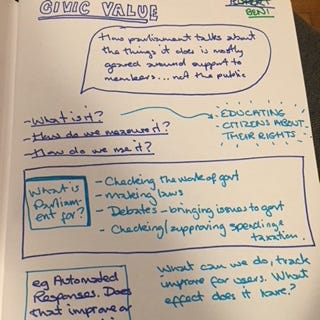 CIVIC VALUE
ROBERT
BEN!
How parliament talks about
the things it does is mostly
geared around support to
members... not the public
- What is it?
- How do we measure it?
- How do we use it?
EDUCATING
CITIZENS ABOUT
THEIR RIGHTS
What is
Parliam-
ent for?
- Checking the work of govt
- making laws
- Debates - bringing issues to govt
- Checking/approving spending &
taxation.
eg Automated
Responses. Does
that improve or
What can we do, track
improve for users. What
effect does it have?